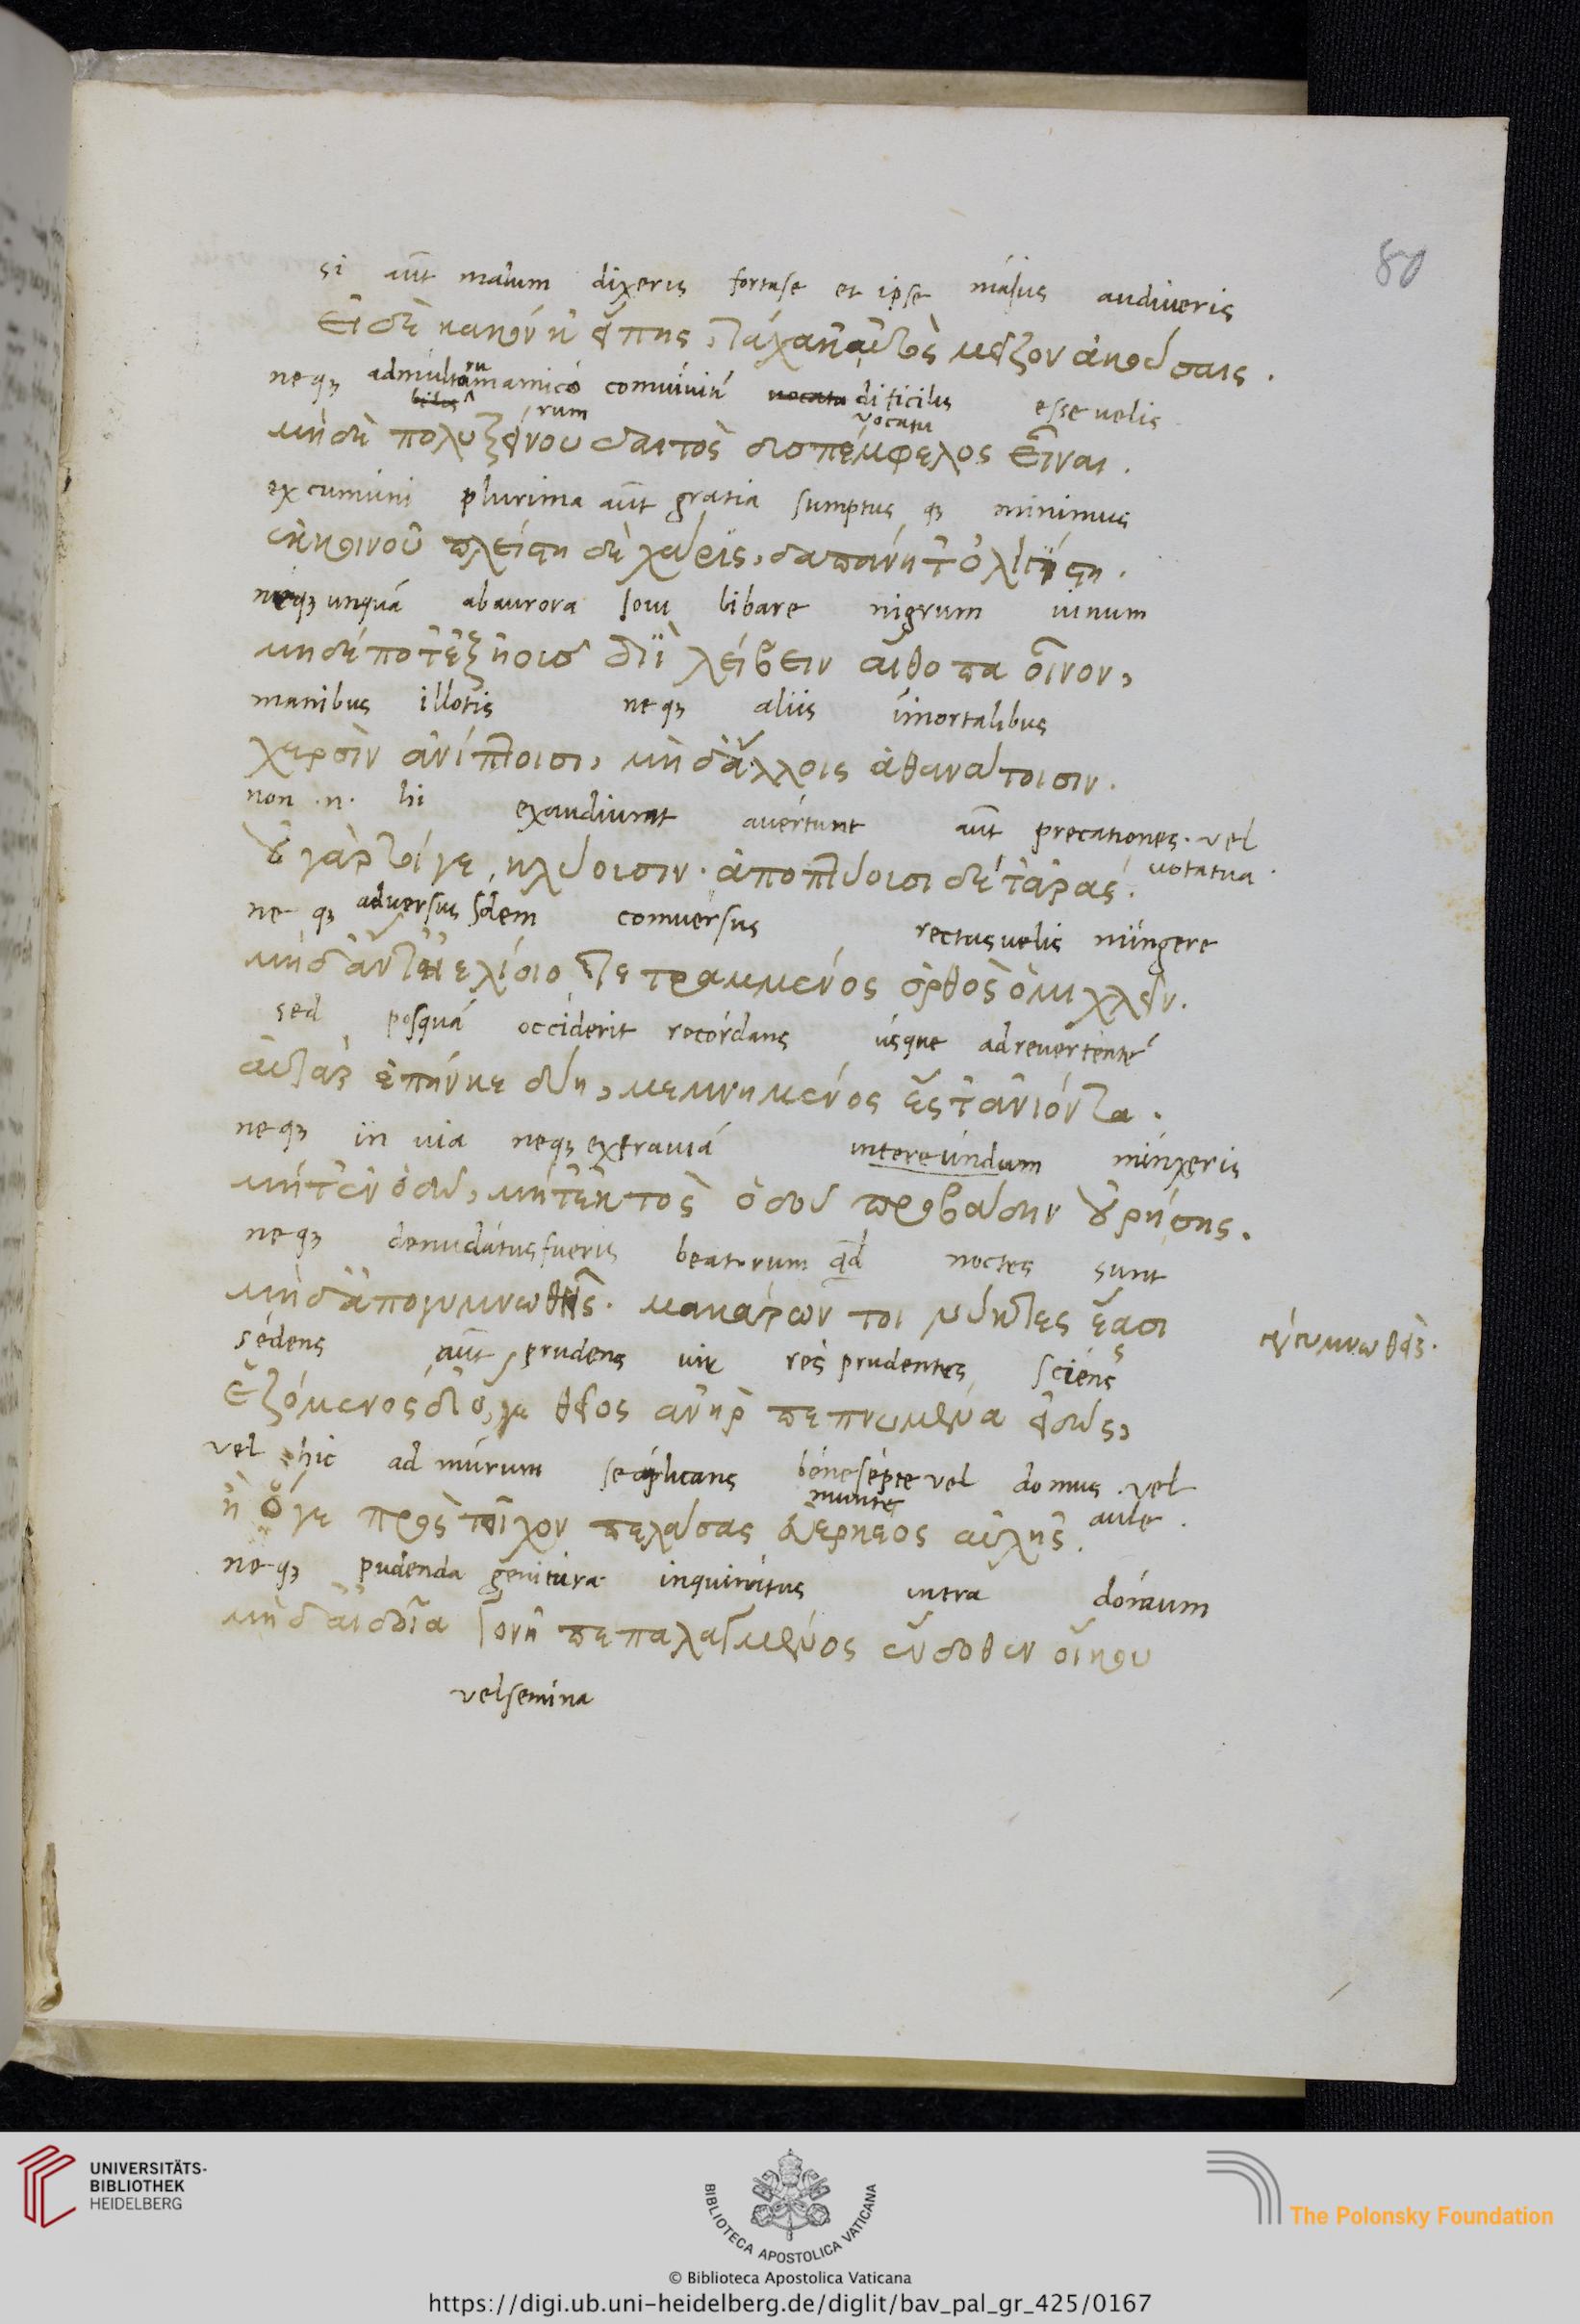 80
si aut̃ malum dixeris fortase et ipse máius audiueris
εἰ δὲ κακόν κ' εἴπης, τάχα κ' αὐτὸς μεῖζον ἀκούσαις.
neqȝ ad multorum amicó conuiuiũ vocatu dificilis esse uelis
μηδὲ πολυξείνου δαιτὸς δυσπέμφελος εἶναι.
ex cumuni plurima aut̃ gratia sumptus qȝ minimus
ἐκ κοινοῦ πλείστη δὲ χάρις, δαπάνη τ' ὀλιγίστη.
neqȝ unquá ab aurora Ioui libare nigrum uinum
μηδέ ποτ' ἐξ ἠοῦς Διῒ λείβειν αἴθοπα οἶνον,
manibus illotis neqȝ aliis ímortalibus
χερσὶν ἀνίπτοισι, μηδ' ἄλλοις ἀθανάτοισιν.
non .n. hi exaudiunt auértunt aut̃ precationes. vel
uotatua
οὐ γὰρ τοί γε κλύοισιν. ἀποπτύουσι δέ τ' ἀράς.
ne qȝ adversus solem conuersus rectus uelis mingere
μηδ' ἄντ' ἠελίοιο τετραμμένος ὀρθὸς ὀμιχλεῖν.
sed posquá occiderit recórdans úsque ad reuérténté
αὐτὰρ ἐπήν κε δύη, μεμνημένος ἔς τ' ἀνιόντα.
neqȝ in uia neqȝ extrauiá intereúndum mínxeris
μήτ' ἐν ὁδῷ, μήτ' ἐκτὸς ὁδοῦ προβάδην οὐρήσης.
neqȝ denudátus fueris beatorum qd noctes sunt
μηδ' ἀπογυμνωθῇς. μακάρων τοι νύκτες ἔασι
γυμνωθείς.
sédens aut̃ prudens uir rés prudentes sciéns
ἑζόμενος δ' ὅ γε θεῖος ἀνὴρ πεπνυμένα εἰδώς,
vel hic ad múrum se aplicans béne sépte vel domus. vel
munite
aule.
ἢ ὅγε πρὸς τοῖχον πελάσας εὐερκέος αὐλῆς.
neqȝ pudenda genitúra inquinátus intra domum
μηδ' αἰδοῖα γονῇ πεπαλαγμένος ἔνδοθεν οἴκου
vel semina
UNIVERSITÄTS-
BIBLIOTHEK
HEIDELBERG
BIBLIOTECA APOSTOLICA VATICANA
The Polonsky Foundation
© Biblioteca Apostolica Vaticana
https://digi.ub.uni-heidelberg.de/diglit/bav_pal_gr_425/0167